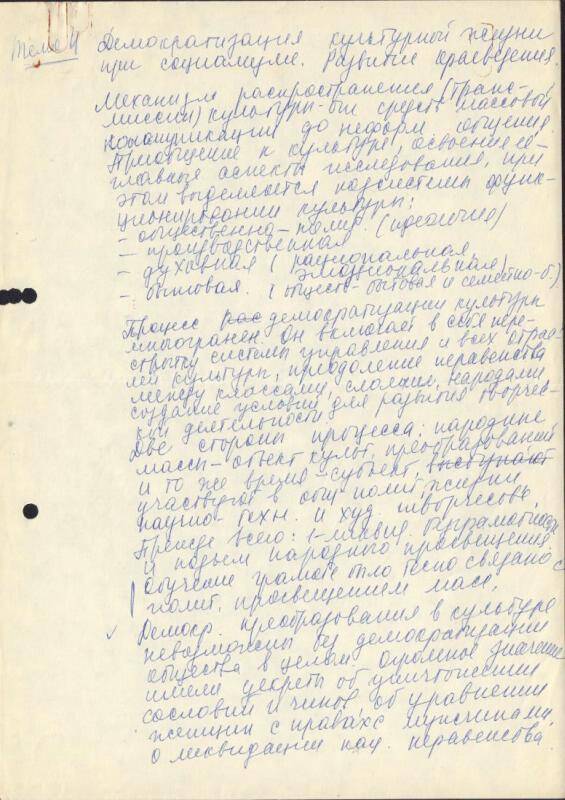 Тема 4 Демократизация культурной жизни
при социализме. Развитие краеведения.
Механизм распространения (транс-
миссии) культуры - от средств массовой
коммуникации до неформ. общения.
Приобщение к культуре, освоение её -
главные аспекты исследования, при
этом выделяются подсистемы функ-
ционирования культуры:
- общественно-полит. (идеология)
- производственная
- духовная (рациональная,
эмоциональная)
- бытовая. (обществ-бытовая и семейно-б.)
Процесс демократизации культуры
многогранен. Он включает в себя пере-
стройку системы управления и всех отрас-
лей культуры, преодоление неравенства
между классами, слоями, народами
создание условий для развития творчес-
кой деятельности.
Две стороны процесса: народные
массы - объект культ. преобразований
и то же время - субъект, выступают
участвует в общ-полит. жизни
научно-техн. и худ. творчестве.
Прежде всего: 1-ликвид. безграмотности
и подъем народного просвещения
Обучение грамоте было тесно связано с
полит. просвещением масс.
Демокр. преобразования в культуре
невозможны без демократизации
общества в целом. Огромное значение
имели декреты об уничтожении
сословий и чинов, об уравнении
женщин в правах с мужчинами,
о ликвидации нац. неравенства.